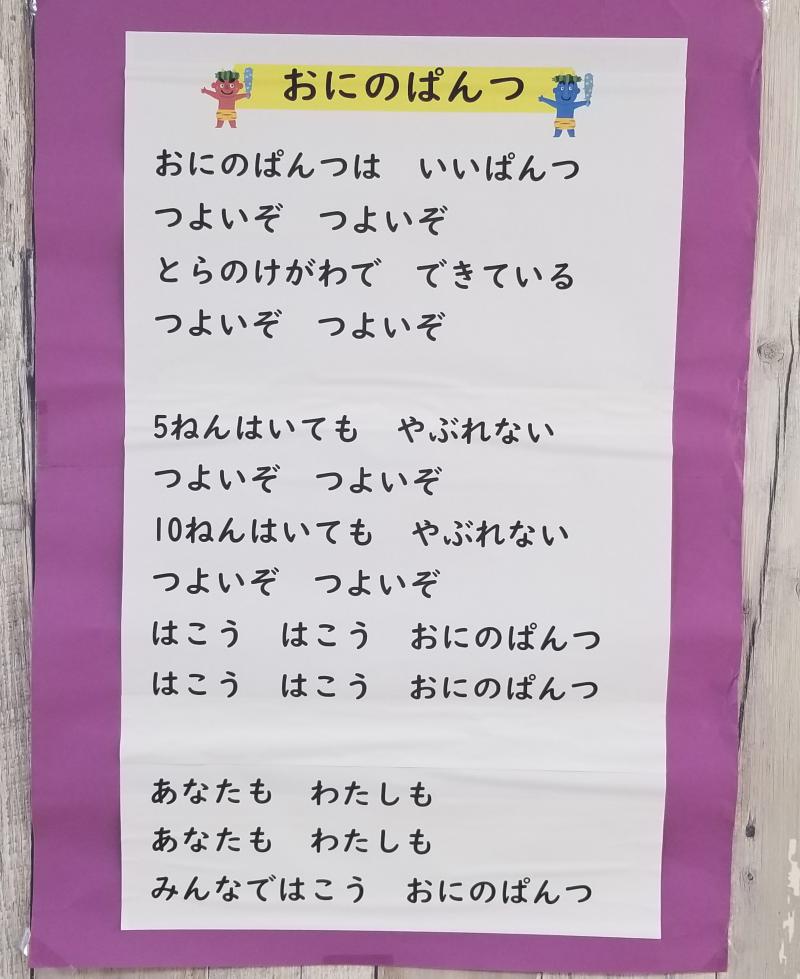 おにのぱんつ
おにのぱんつは　いいぱんつ
つよいぞ　つよいぞ
とらのけがわで　できている
つよいぞ　つよいぞ
5ねんはいても　やぶれない
つよいぞ　つよいぞ
10ねんはいても　やぶれない
つよいぞ　つよいぞ
はこう　はこう　おにのぱんつ
はこう　はこう　おにのぱんつ
あなたも　わたしも
あなたも　わたしも
みんなではこう　おにのぱんつ